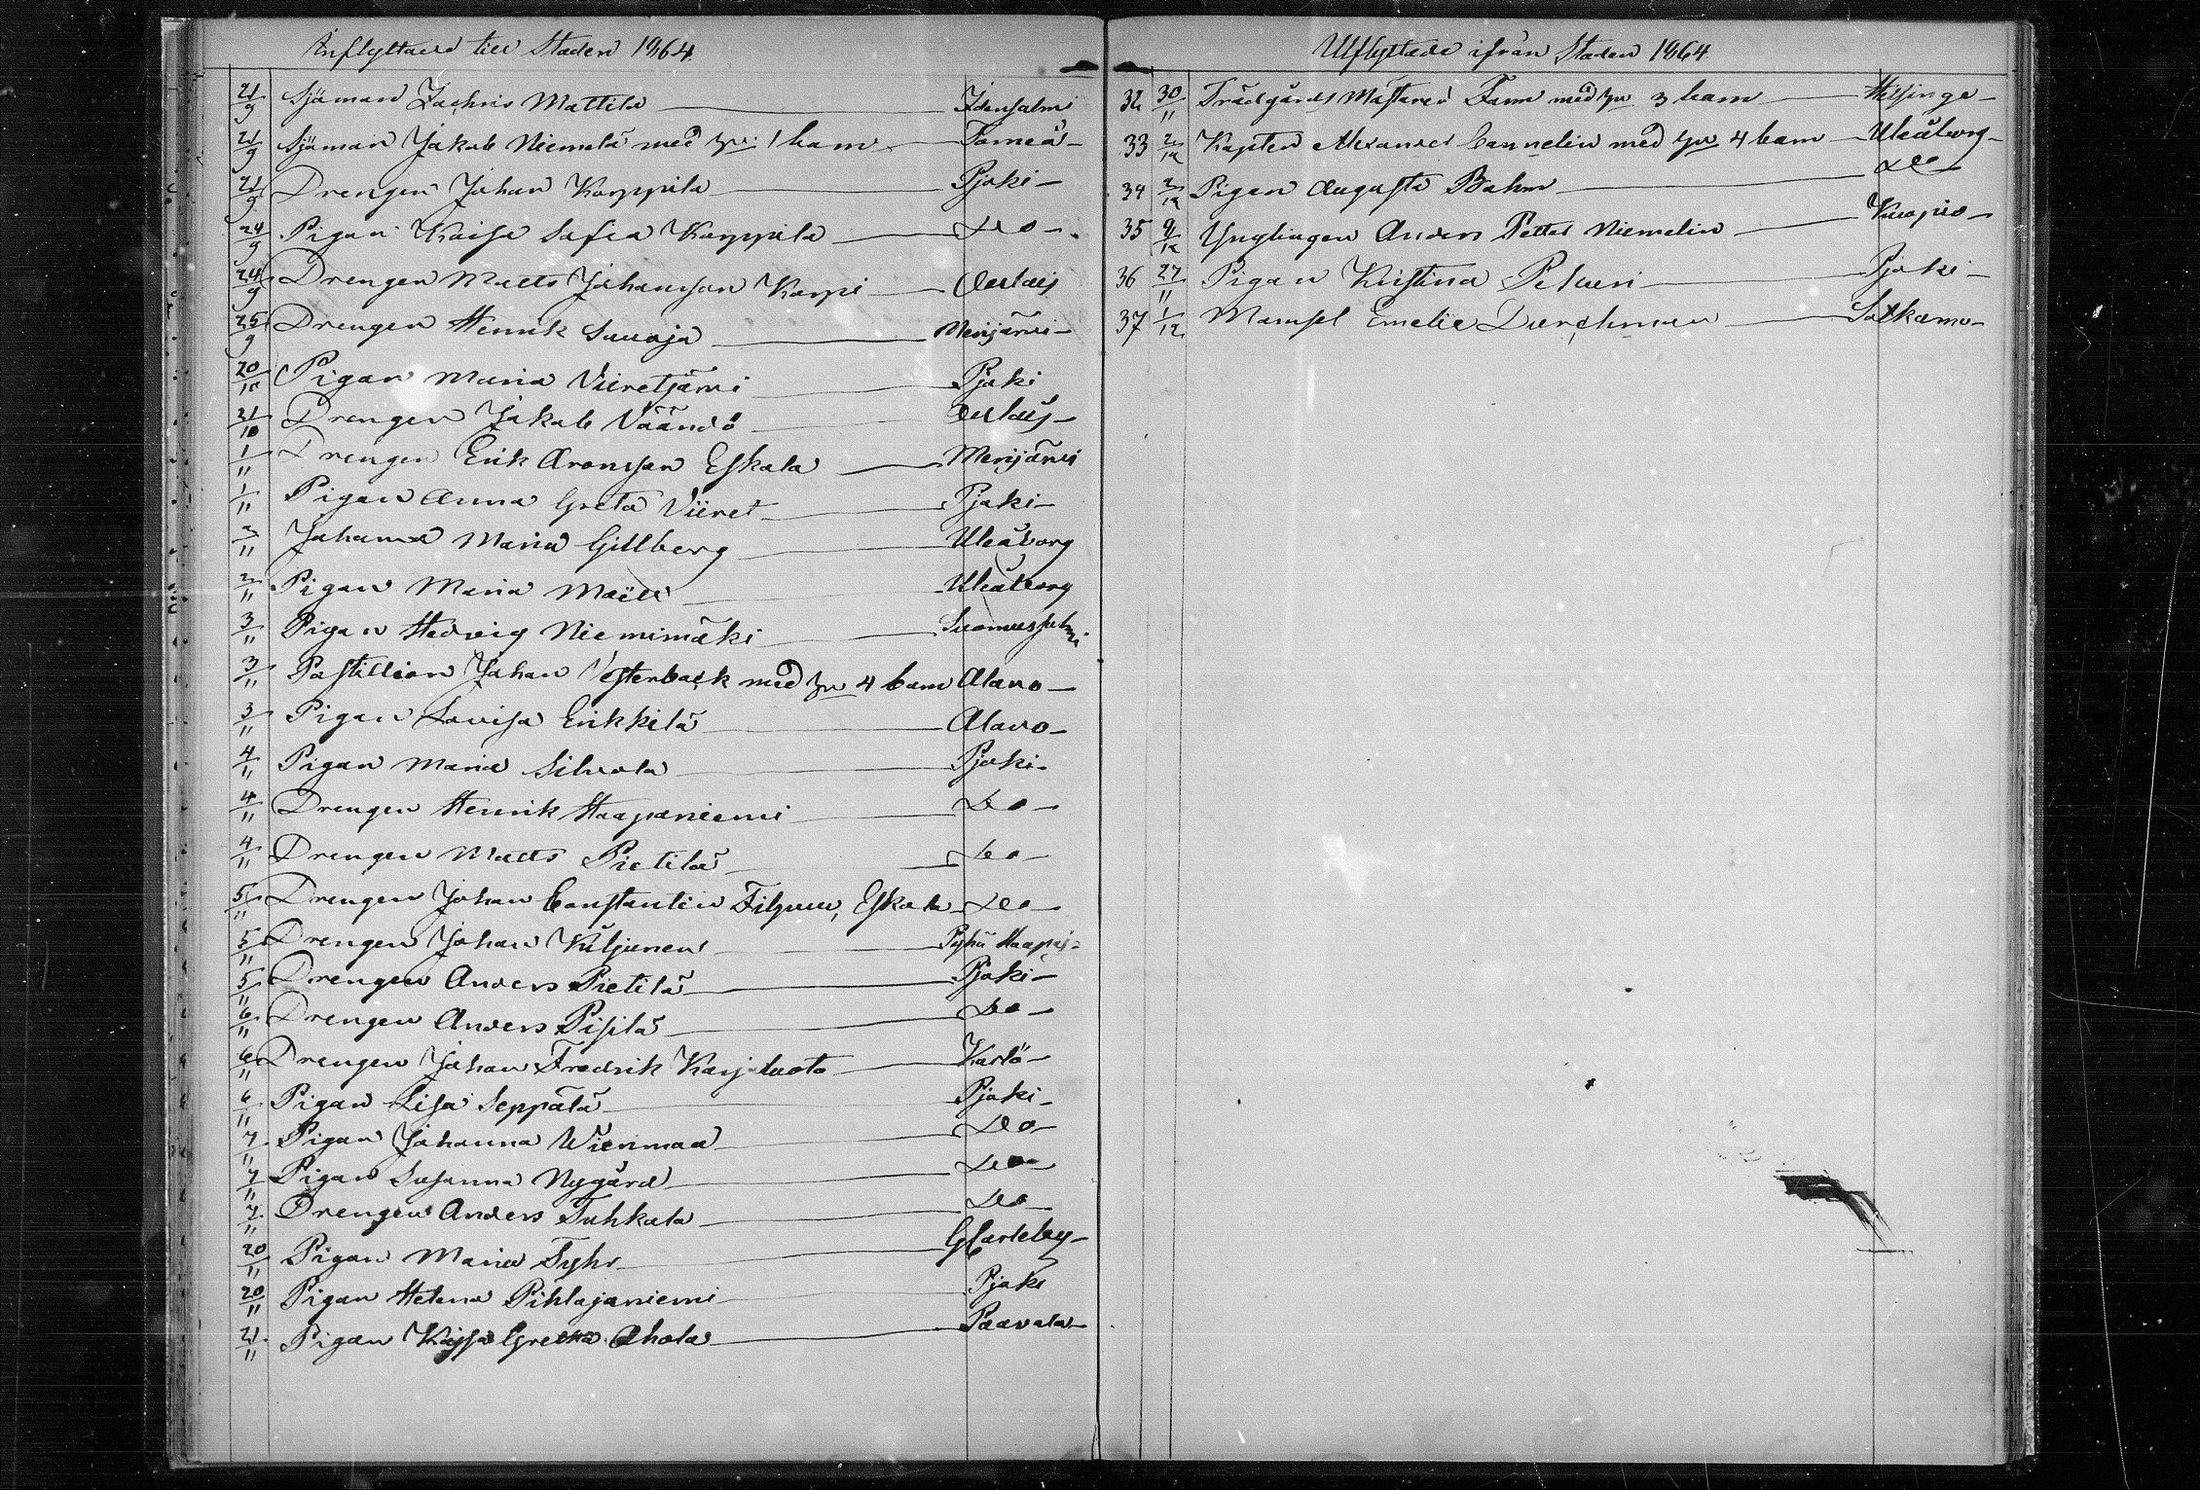 Inflyttade till Staden 1864.
21/9 Sjöman Zachris Mattila Idensalmi
21/9 Sjöman Jakob Niemelä med 1 barn Torneå
21/9 Drengen Johan Karppila Pjoki
24/9 Pigan Kaisa Sofia Karppila Do
24/9 Drengen Matts Johansson Karpi
25/9 Drengen Henrik Suuoja Merijärvi
20/10 Pigan Maria Viiretjärvi Pjoki
21/10 Drengen Jakob Väändö
1/11 Drengen Erik Aronsson Eskola Merijärvi
1/11 Pigan Anna Greta Viiret Pjoki
2/11 Johanna Maria Gillberg Uleåborg
2/11 Pigan Maria Uleåborg
3/11 Pigan Hedvig Niemimäki Suomussalmi
3/11 Postillion Johan Vesterback med 4 barn Alavo
3/11 Pigan Lovisa Erikkilä Alavo
4/11 Pigan Maria Silvola Pjoki
4/11 Drengen Henrik Haapaniemi Do
4/11 Drengen Matts Pietilä Do
5/11 Drengen Johan Constantin Eskola Do
5/11 Drengen Johan Kiljunen
5/11 Drengen Anders Pietilä Pjoki
6/11 Drengen Anders Pisilä Do
6/11 Drengen Johan Fredrik Karjaluoto Karlö
6/11 Pigan Lisa Seppälä Pjoki
7/11 Pigan Johanna Wierimaa Do
7/11 Pigan Susanna Nygård Do
7/11 Drengen Anders Tuhkala Do
20/11 Pigan Maria Fyhr GCarleby
20/11 Pigan Helena Pihlajaniemi Pjoki
21/11 Pigan Kajsa Greta Ahola Paavola
Utflyttade ifrån Staden 1864.
32 30/11 Trädgårds Mästaren Fann med 3 barn Helsinge
33 2/12 Kapten Alexander Cannelin med 4 barn Uleåborg
34 2/12 Pigan Augusta Bohm Do
35 9/12 Ynglingen Anders Petter Niemelin Kuopio
36 27/11 Pigan Kristina Pekuri Pjoki
37 1/12 Mamsel Emelie Durchman Sotkamo